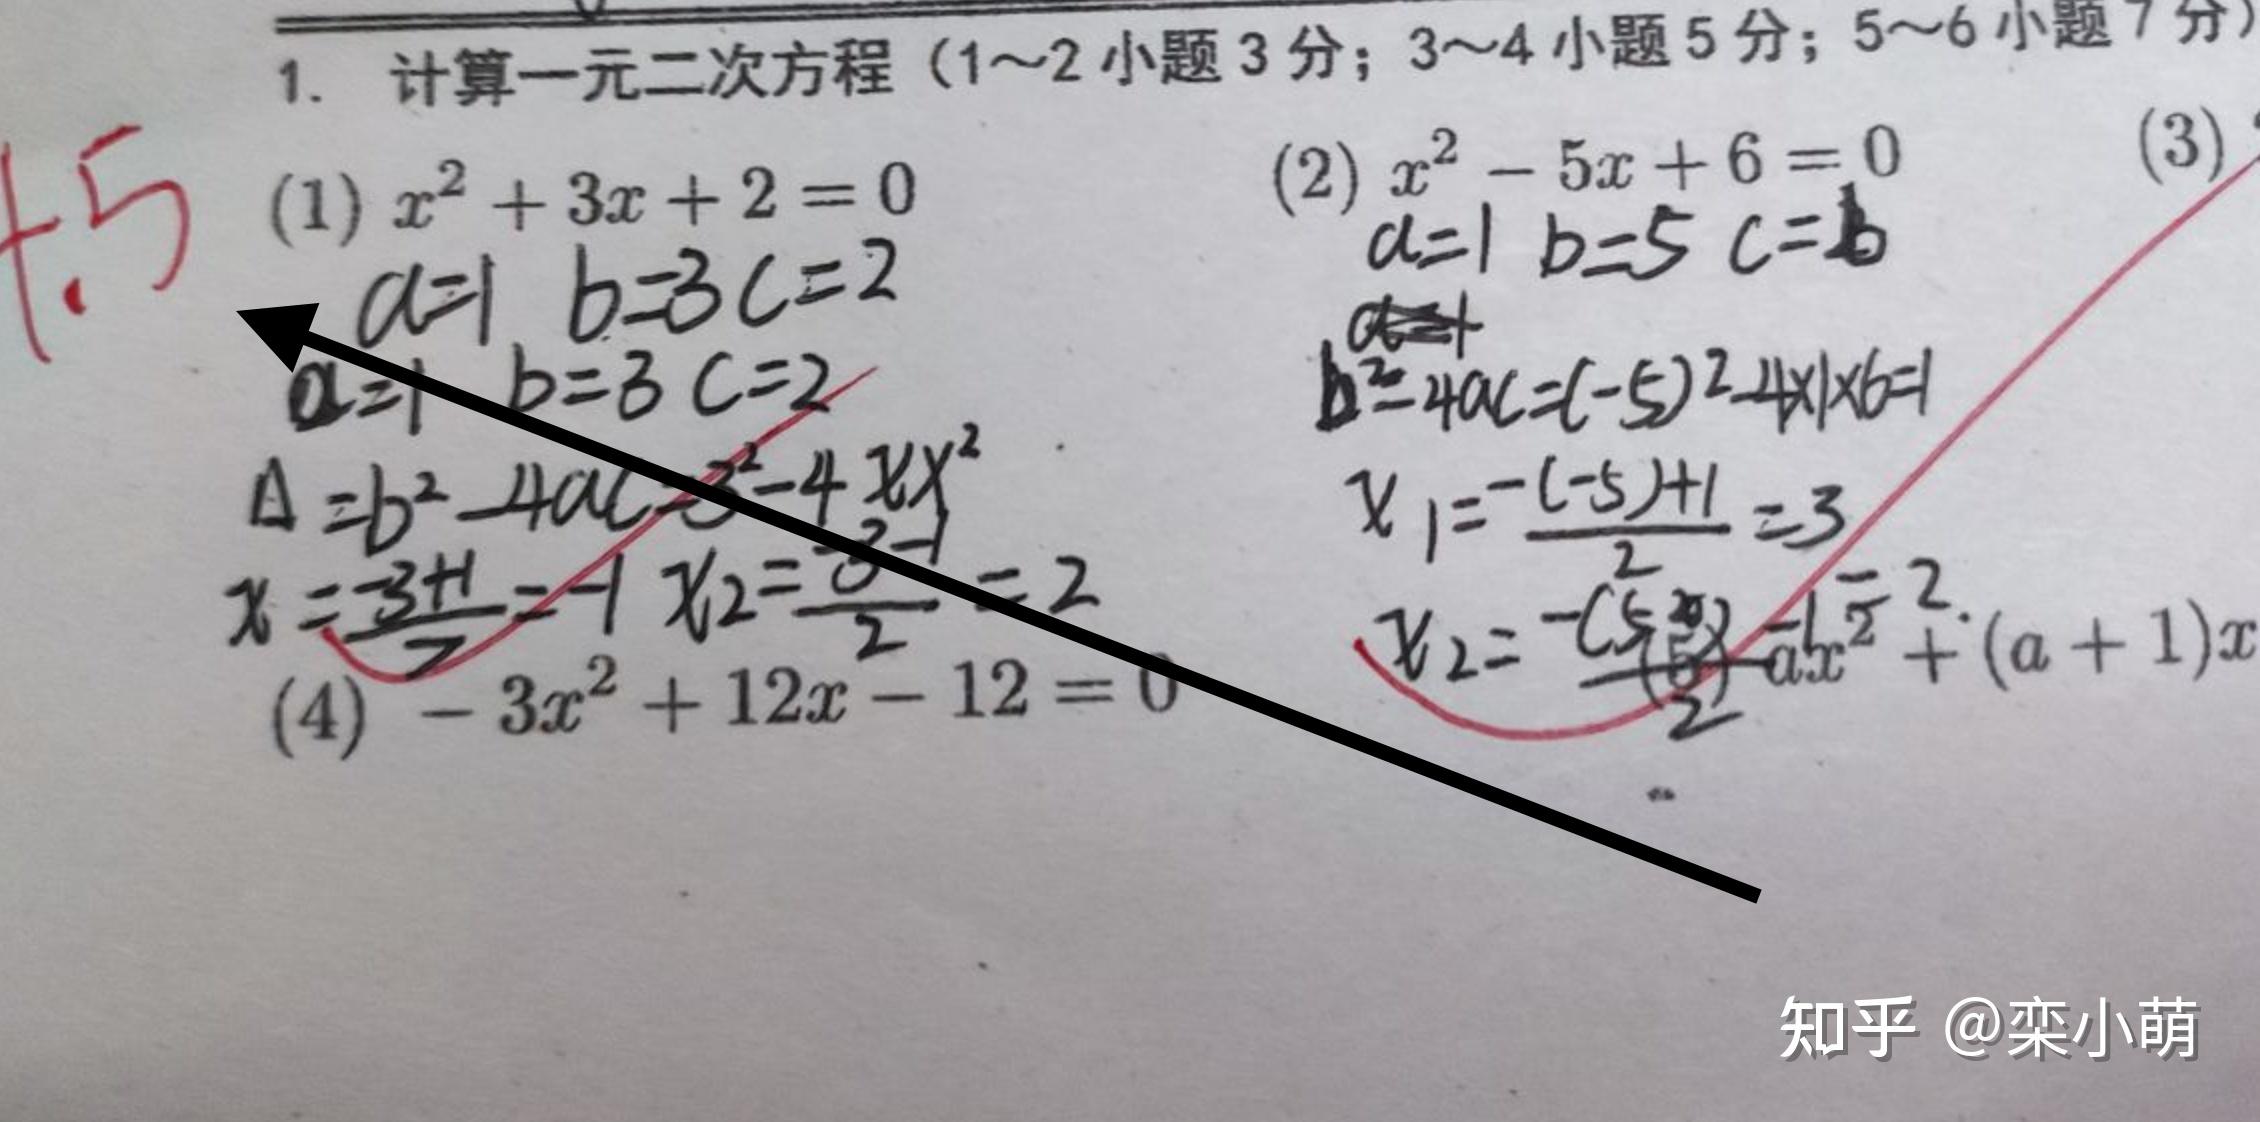 1. 计算一元二次方程（1～2 小题 3 分；3～4 小题 5 分；5～6 小题 7 分）
+.5
(1) x² + 3x + 2 = 0
a=1 b=3 c=2
a=1 b=3 c=2
Δ=b²-4ac=3²-4×x²
x=-3+1/2=-1 x2=-3-1/2=2
(2) x² - 5x + 6 = 0
a=1 b=5 c=6
b²-4ac=(-5)²-4×1×6=1
x1=-(-5)+1/2=3
x2=-(5)-1/2=2.
(3)
(4) - 3x² + 12x - 12 = 0
(5) ax² + (a + 1)x
知乎 @栾小萌